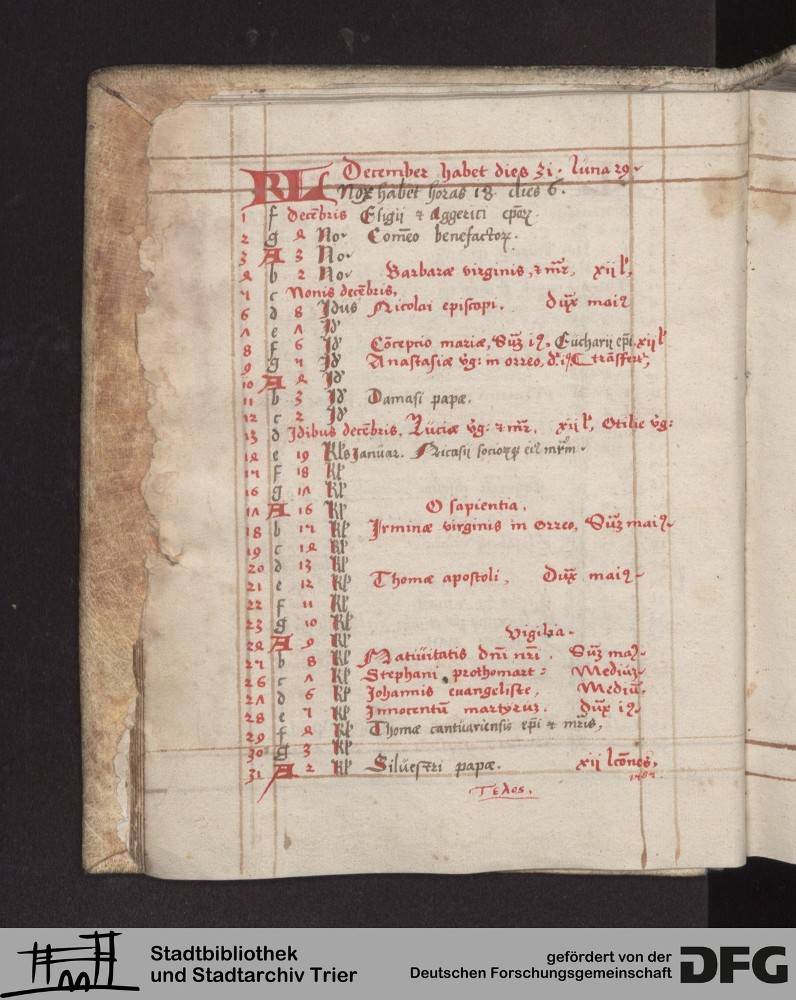 KL December habet dies 31. luna 29.
Nox habet horas 18. dies 6.
1 f decēbris Eligii ⁊ Aggerici ep̄oꝝ.
2 g 4 No. Com̄eo benefactoꝝ.
3 A 3 No.
4 b 2 No. Barbaræ virginis, ⁊ mr̄. xii l̄,
5 c Nonis decēbris.
6 d 8 Idus Nicolai episcopi. Dux̄ maiꝰ
7 e 7 Id
8 f 6 Id Cōcepcio mariæ, Sum̄ iꝰ, Eucharii ep̄i. xii l̄
9 g 5 Id Anastasiæ v̄g: in orreo, trāsfert
10 A 4 Id
11 b 3 Id Damasi papæ.
12 c 2 Id
13 d Idibus decēbris. Luciæ v̄g: ⁊ mr̄. xii l̄, Otilie v̄g:
14 e 19 Kl̄s Januar. Nicasii socioꝝꝙ eiꝰ mr̄m.
15 f 18 Kl̄
16 g 17 Kl̄
17 A 16 Kl̄ O sapientia.
18 b 15 Kl̄ Irminæ virginis in orreo, Sum̄ maiꝰ.
19 c 14 Kl̄
20 d 13 Kl̄
21 e 12 Kl̄ Thomæ apostoli, Dux̄ maiꝰ.
22 f 11 Kl̄
23 g 10 Kl̄
24 A 9 Kl̄ Vigilia.
25 b 8 Kl̄ Natiuitatis dn̄i nr̄i. Sum̄ maꝰ.
26 c 7 Kl̄ Stephani prothomart: Mediuz.
27 d 6 Kl̄ Johannis euangeliste, Mediū.
28 e 5 Kl̄ Innocentū martyruz. Dux̄ iꝰ.
29 f 4 Kl̄ Thomæ cantuariensis ep̄i ⁊ mr̄is,
30 g 3 Kl̄
31 A 2 Kl̄ Siluestri papæ. xii lc̄ones,
Τελος.
Stadtbibliothek
und Stadtarchiv Trier
gefördert von der
Deutschen Forschungsgemeinschaft
DFG